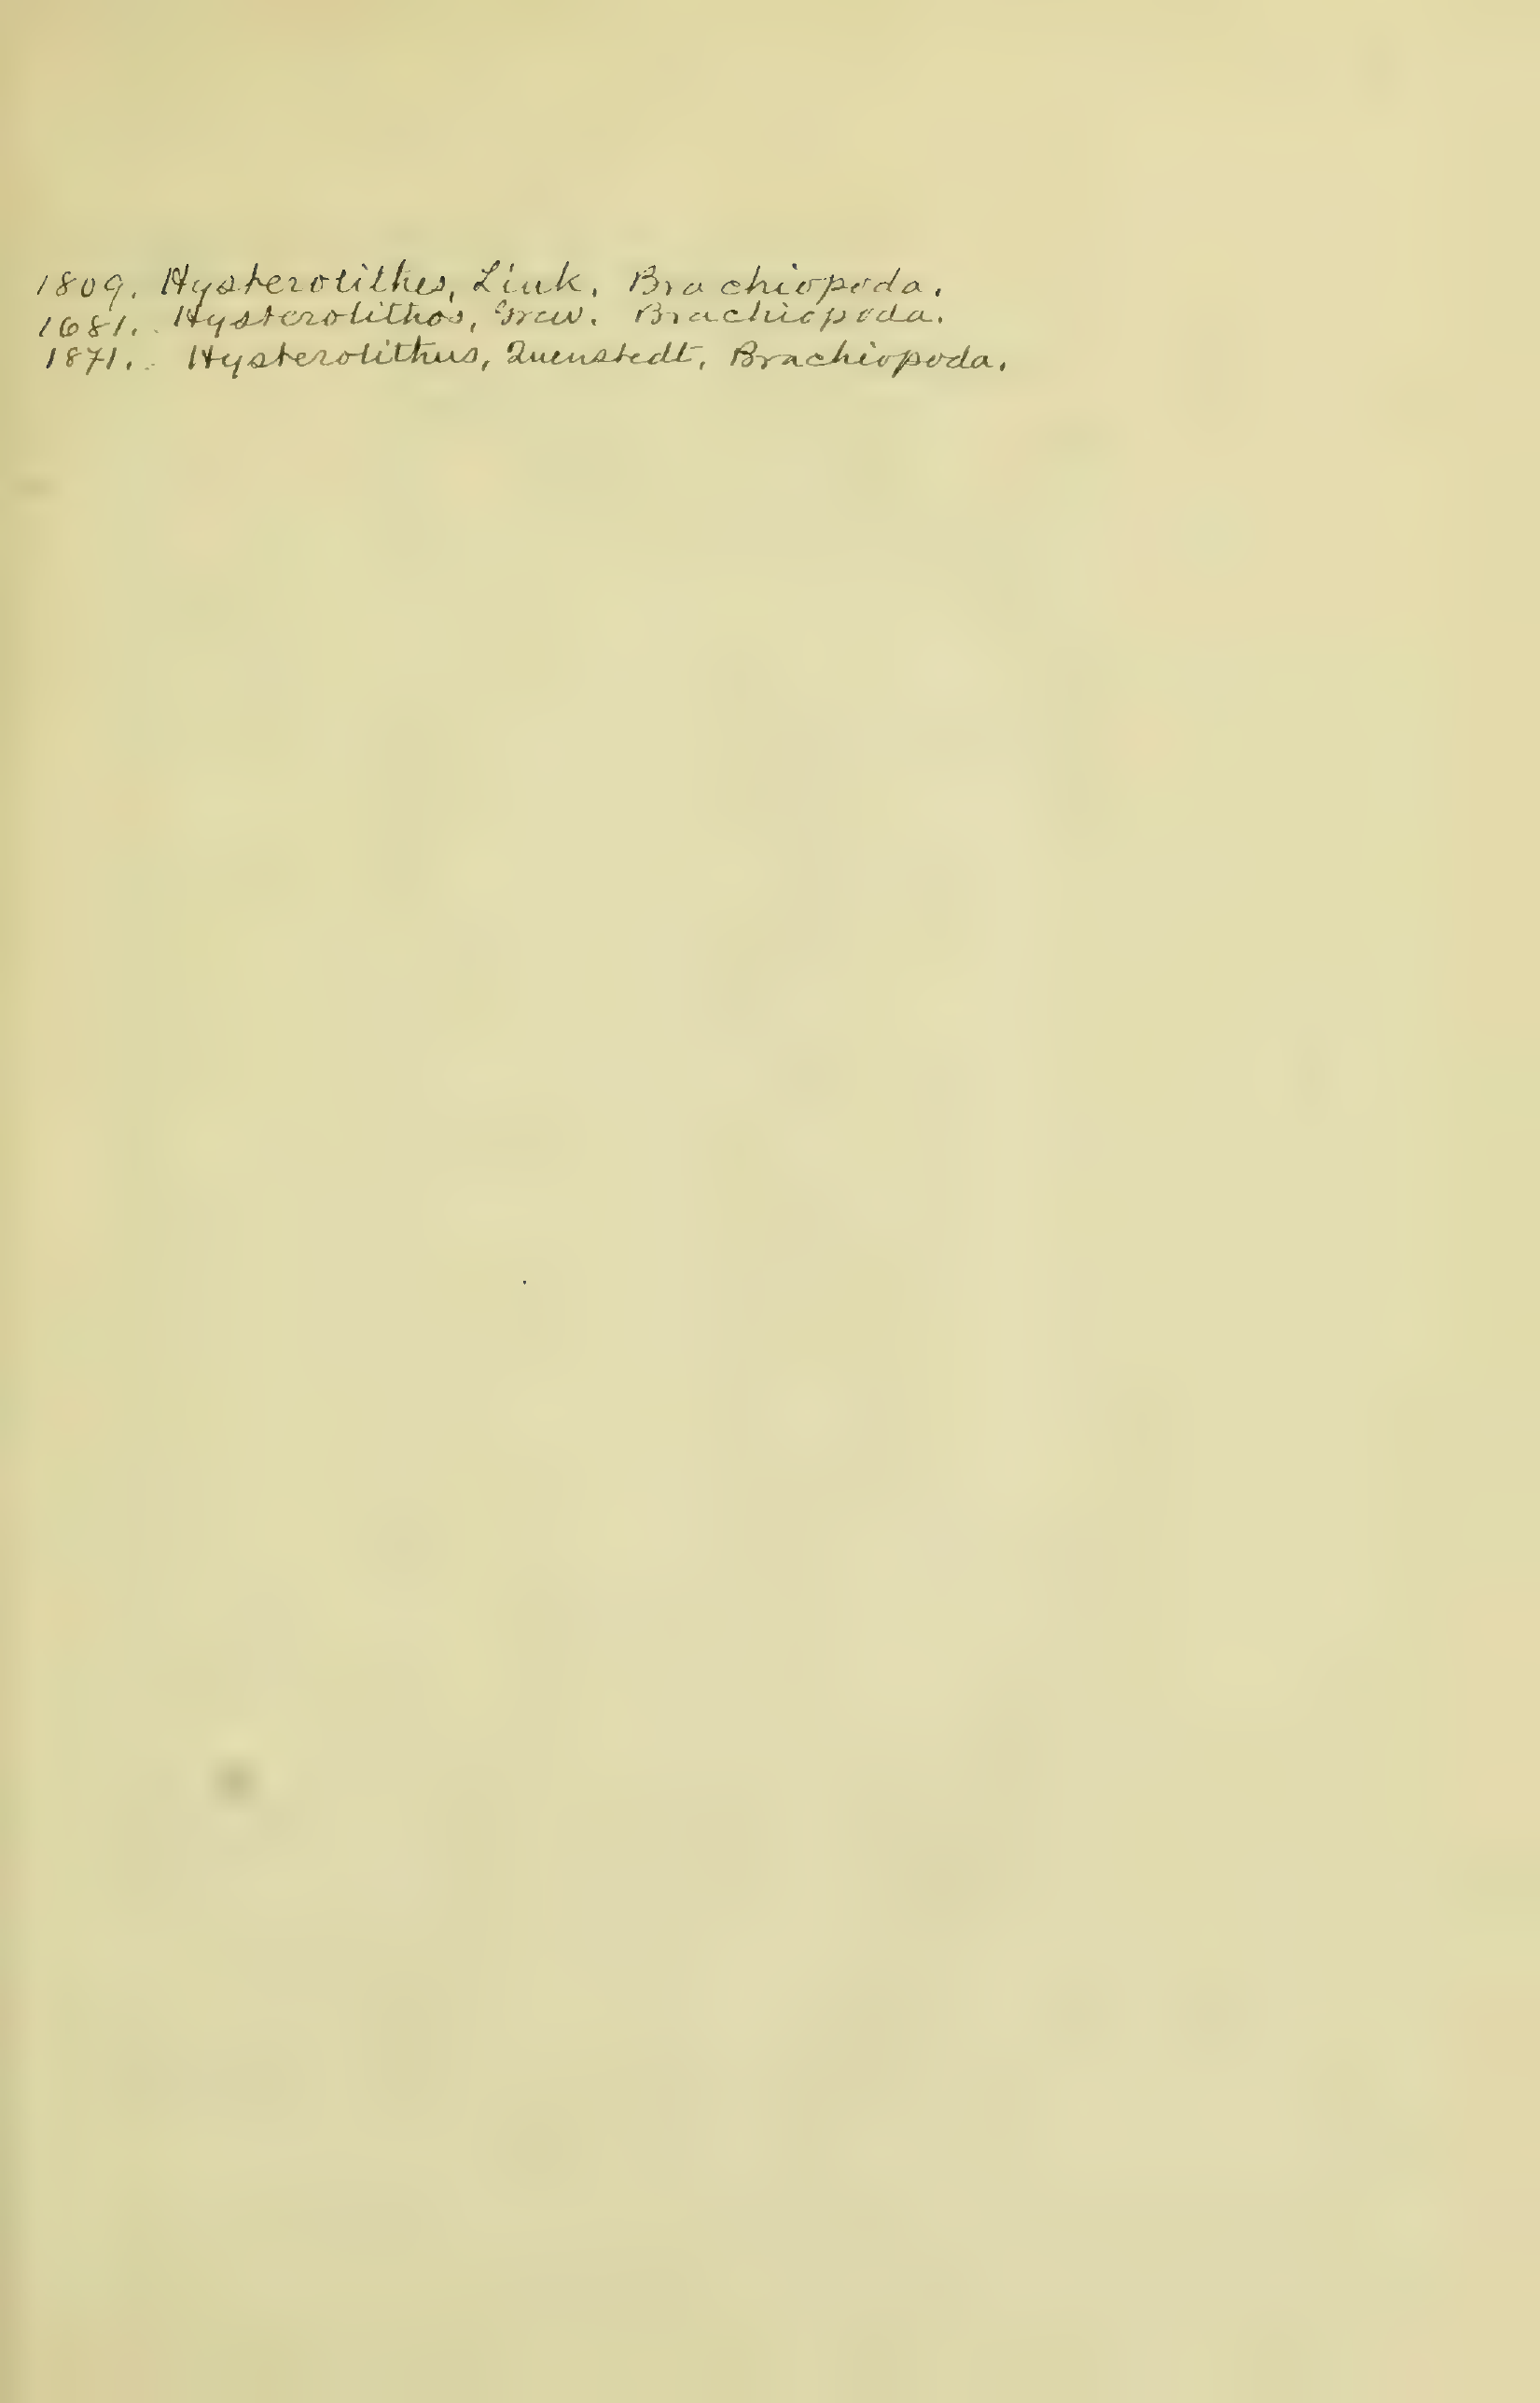 1809. Hysterolithes, Link. Brachiopoda.
1681. Hysterolithos, Grew. Brachiopoda.
1871. Hysterolithus, Quenstedt, Brachiopoda.